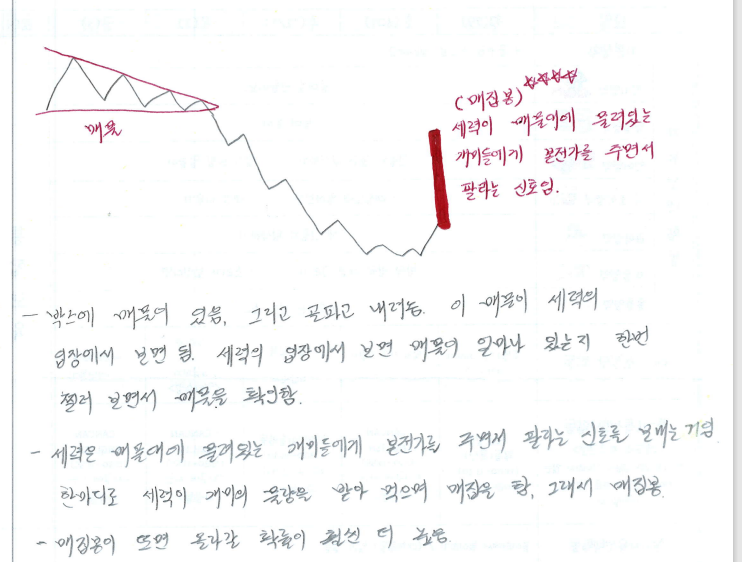 매물
(매집봉) ☆☆☆☆
세력이 매물대에 물려있는
개미들에게 본전가를 주면서
팔라는 신호임.
- 박스에 매물이 있음, 그리고 골파고 내려놈. 이 매물이 세력의
입장에서 보면 됨. 세력의 입장에서 보면 매물이 얼마나 있는지 한번
찔러 보면서 매물을 확인함.
- 세력은 매물대에 물려있는 개미들에게 본전가를 주면서 팔라는 신호를 보내는거임
한마디로 세력이 개미의 물량을 받아 먹으며 매집을 함, 그래서 매집봉
- 매집봉이 뜨면 올라갈 확률이 훨씬 더 높음.